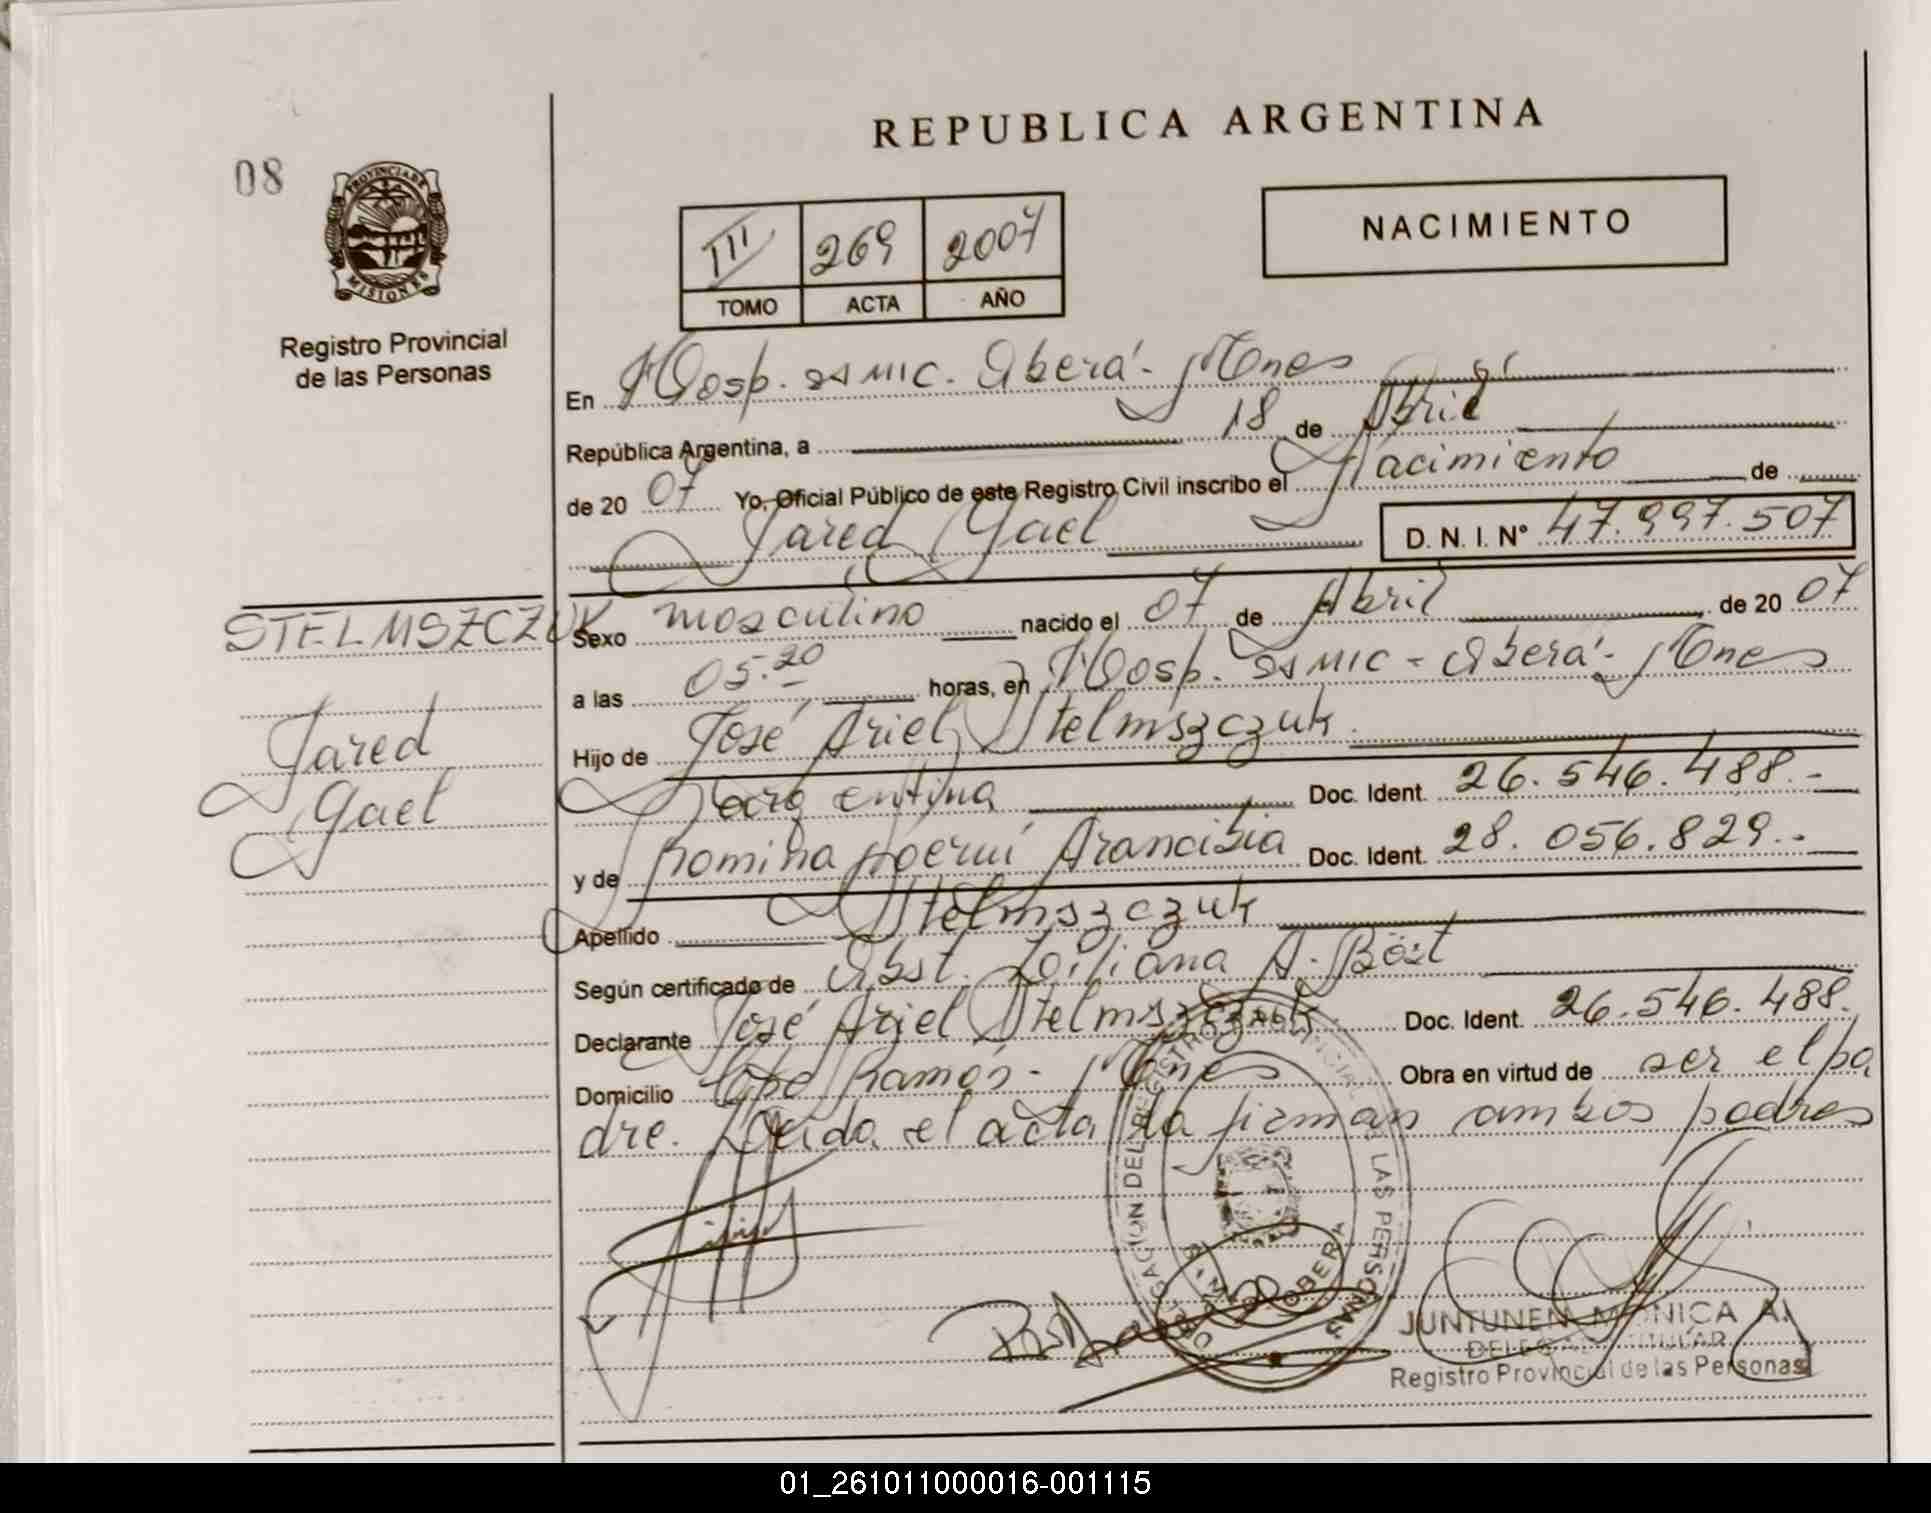 REPUBLICA ARGENTINA
08
PROVINCIA DE
MISIONES
Registro Provincial
de las Personas
NACIMIENTO
III 269 2007
TOMO ACTA AÑO
En Hosp. SAMIC. Oberá - Mnes
República Argentina, a 18 de Abril
de 20 07 Yo, Oficial Público de este Registro Civil inscribo el Nacimiento de
Jared Gael D. N. I. Nº 47.997.507
STELMSZCZUK
Jared
Gael
Sexo masculino nacido el 07 de Abril de 20 07
a las 05.20 horas, en Hosp. SAMIC - Oberá - Mnes
Hijo de José Ariel Stelmszczuk
Argentina Doc. Ident. 26.546.488.-
y de Romina Noemí Arancibia Doc. Ident. 28.056.829.-
Apellido Stelmszczuk
Según certificado de Obst. Liliana A. Böst
Declarante José Ariel Stelmszczuk Doc. Ident. 26.546.488.
Domicilio Ramón - Mnes Obra en virtud de ser el pa
dre. Leída el acta la firman ambos padres
DELEGACION DEL REGISTRO PROVINCIAL DE LAS PERSONAS
OBERA
JUNTUNEN MONICA A.
DELEGADA TITULAR
Registro Provincial de las Personas
01_261011000016-001115